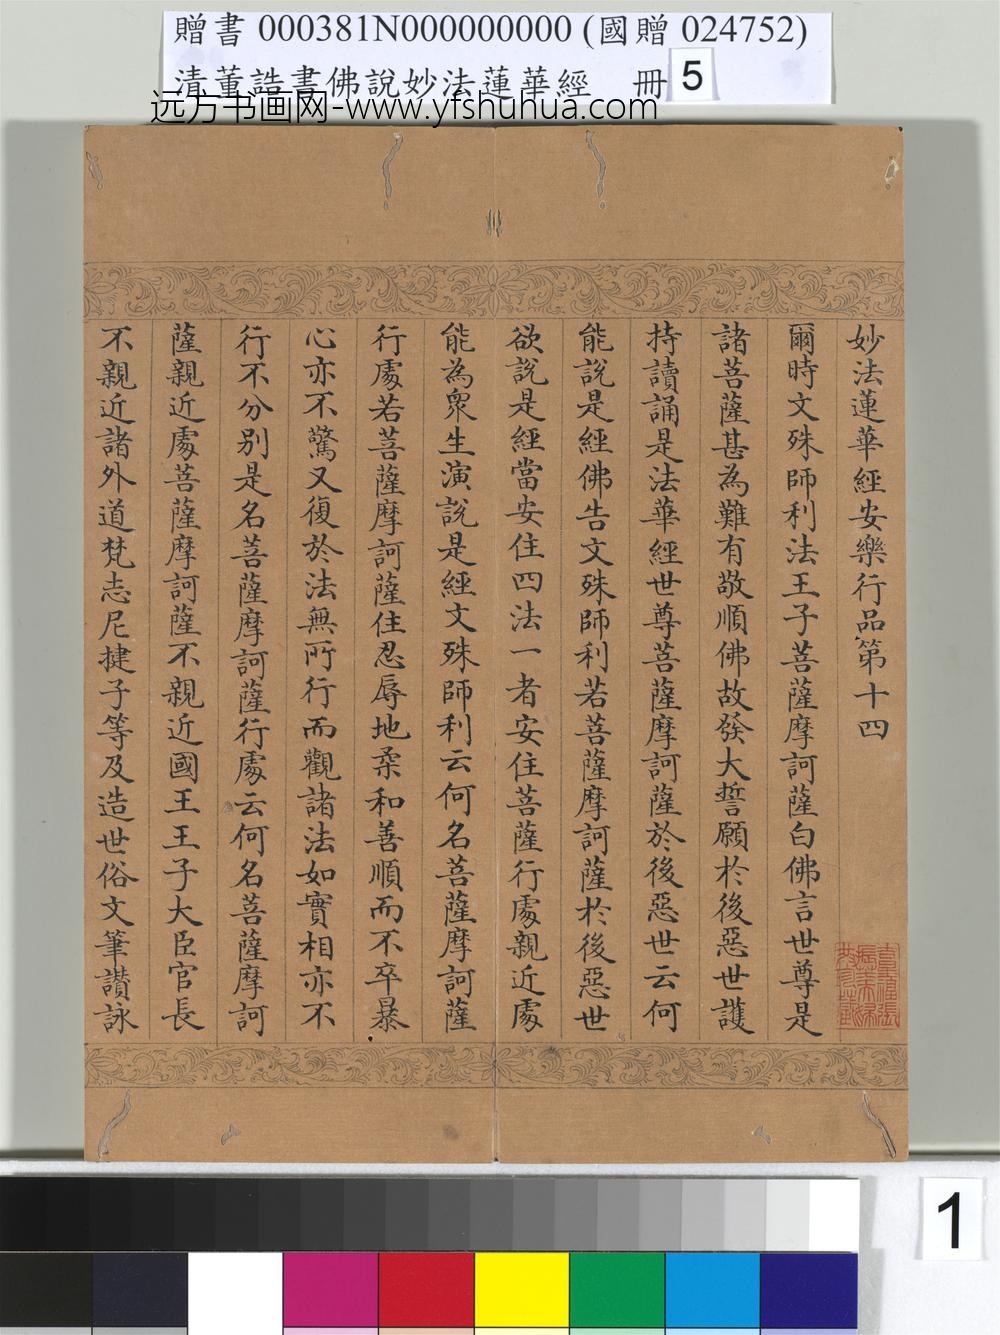 贈書 000381N000000000 (國贈 024752)
清董誥書佛說妙法蓮華經 冊 5
远方书画网-www.yfshuhua.com
妙法蓮華經安樂行品第十四
爾時文殊師利法王子菩薩摩訶薩白佛言世尊是
諸菩薩甚為難有敬順佛故發大誓願於後惡世護
持讀誦是法華經世尊菩薩摩訶薩於後惡世云何
能說是經佛告文殊師利若菩薩摩訶薩於後惡世
欲說是經當安住四法一者安住菩薩行處親近處
能為眾生演說是經文殊師利云何名菩薩摩訶薩
行處若菩薩摩訶薩住忍辱地柔和善順而不卒暴
心亦不驚又復於法無所行而觀諸法如實相亦不
行不分別是名菩薩摩訶薩行處云何名菩薩摩訶
薩親近處菩薩摩訶薩不親近國王王子大臣官長
不親近諸外道梵志尼揵子等及造世俗文筆讚詠
1